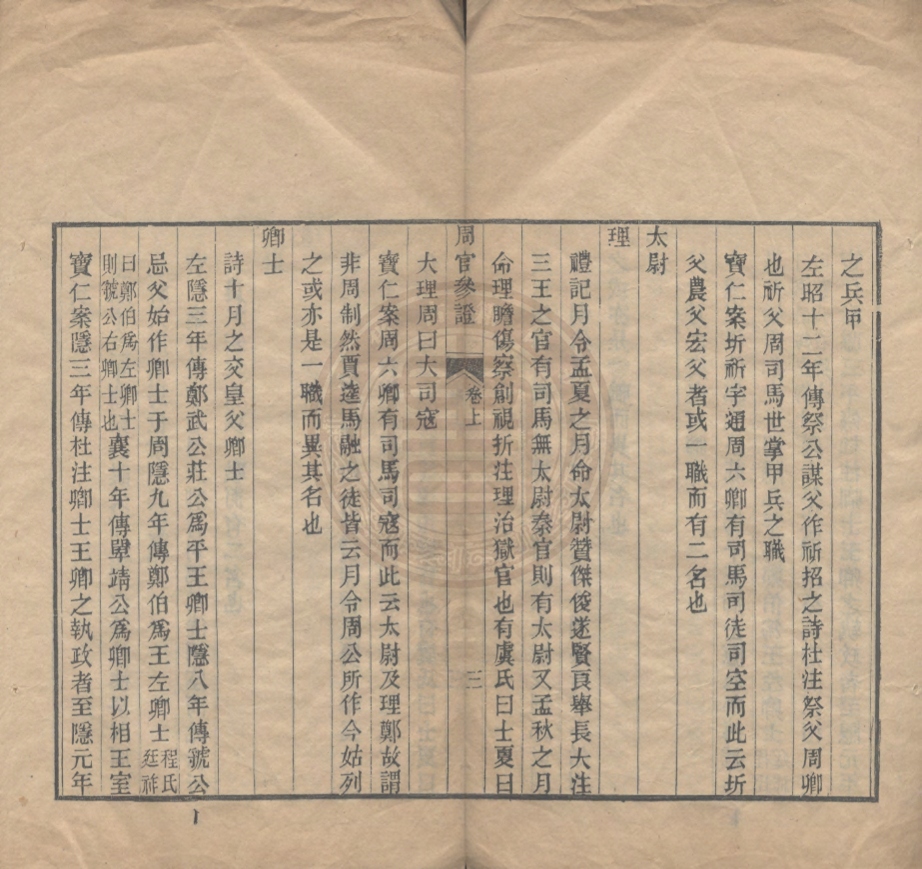 之兵甲
左昭十二年傳祭公謀父作祈招之詩杜注祭父周卿
也祈父周司馬世掌甲兵之職
寶仁案圻祈字通周六卿有司馬司徒司空而此云圻
父農父宏父者或一職而有二名也
太尉
理
禮記月令孟夏之月命太尉贊傑俊遂賢良舉長大注
三王之官有司馬無太尉秦官則有太尉又孟秋之月
命理瞻傷察創視折注理治獄官也有虞氏曰士夏曰
周官參證
卷上
三
大理周曰大司寇
寶仁案周六卿有司馬司寇而此云太尉及理鄭故謂
非周制然賈逵馬融之徒皆云月令周公所作今姑列
之或亦是一職而異其名也
卿士
詩十月之交皇父卿士
左隱三年傳鄭武公莊公爲平王卿士隱八年傳虢公
忌父始作卿士于周隱九年傳鄭伯爲王左卿士程氏廷祚
曰鄭伯爲左卿士則虢公右卿士也襄十年傳單靖公爲卿士以相王室
寶仁案隱三年傳杜注卿士王卿之執政者至隱元年